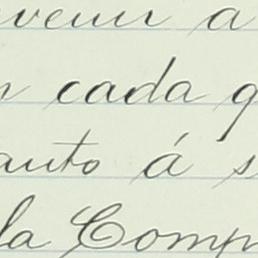 venir a
cada q
anto á s
la Comp